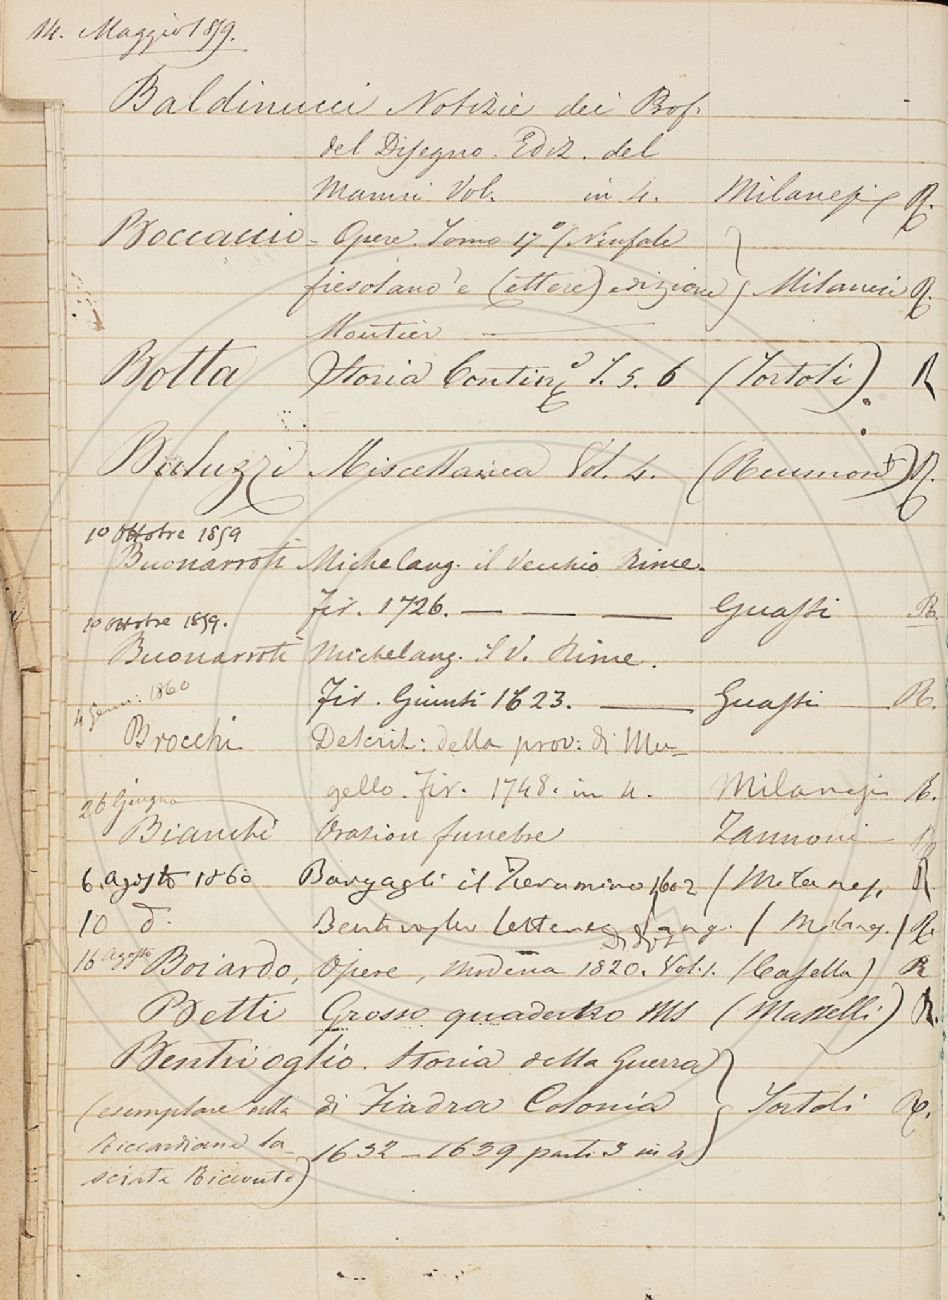 14. Maggio 1859.
Baldinucci Notizie dei Prof.
del Disegno. Ediz. del
Manni Vol. in 4. Milanesi R.
Boccaccio - Opere. Tomo 17º (Ninfale
fiesolano e Lettere) edizione Milanesi R.
Moutier
Botta Storia Contin. T. 5. 6 (Tortoli) R
Baluzzi Miscellanea Vol. 4. (Reumont) R.
10 Ottobre 1859
Buonarroti Michelang. il Vecchio Rime.
Fir. 1726. — — — Guasti R.
10 Ottobre 1859.
Buonarroti Michelang. il V. Rime.
Fir. Giunti 1623. — Guasti R.
4 Genn: 1860
Brocchi Descriz: della prov: di Mu-
gello. Fir. 1748. in 4. Milanesi R.
26 Giugno
Bianchi Orazion funebre Zannoni R
6. Agosto 1860 Bargagli il Turamino 1602 / Milanes. R.
10 d: Bentivoglio Lettere / Milanes. / R.
Didot
16 Agosto Boiardo, Opere, Modena 1820. Vol. 1. (Casella) R
Betti Grosso quaderno MS (Masselli) R.
Bentivoglio. Storia della Guerra
(esemplare della di Fiandra Colonia Tortoli R.
Riccardiana la- 1632 - 1639 parti 3 in 4
sciata Ricevuto)